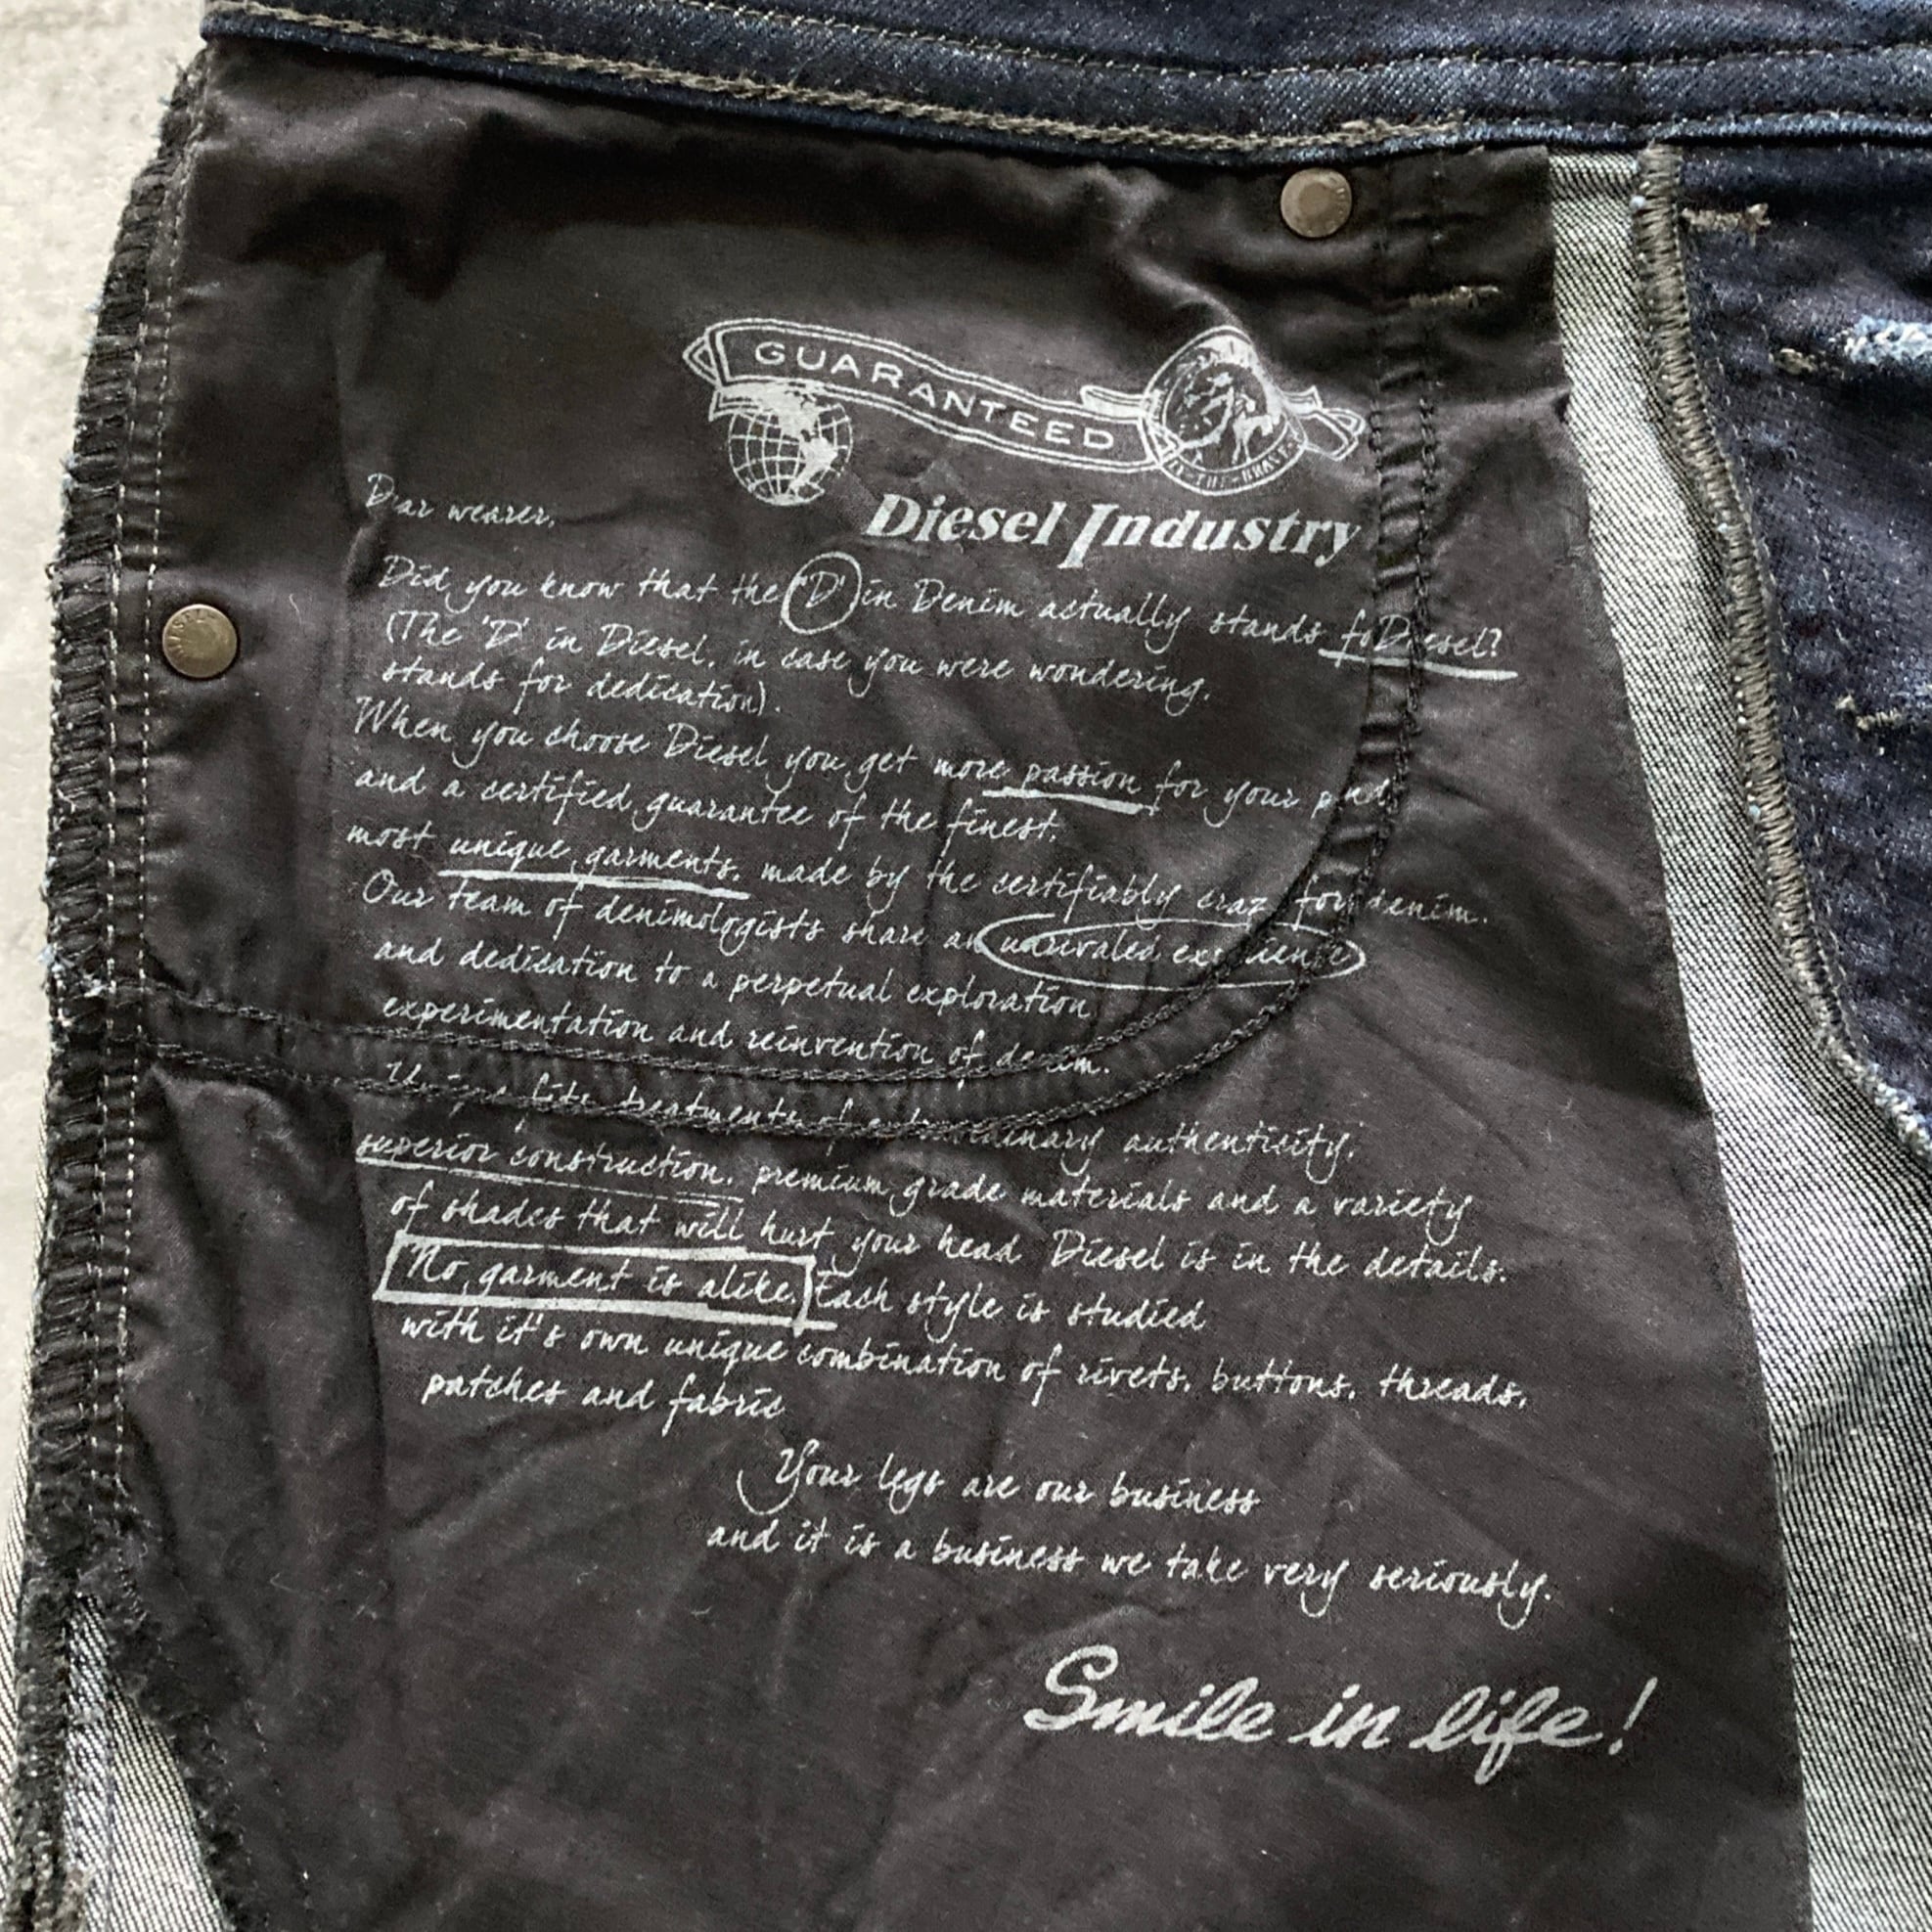 GUARANTEED
THE BRAVE
Diesel Industry
Dear wearer,
Did you know that the 'D' in Denim actually stands fo Diesel?
(The 'D' in Diesel, in case you were wondering,
stands for dedication).
When you choose Diesel you get more passion for your
and a certified guarantee of the finest,
most unique garments, made by the certifiably craz for denim.
Our team of denimologists share an unrivaled
and dedication to a perpetual exploration
experimentation and reinvention of denim.
Unique fits, treatments of extraordinary authenticity,
superior construction, premium grade materials and a variety
of shades that will hurt your head Diesel is in the details.
No garment is alike. Each style is studied
with it's own unique combination of rivets, buttons, threads,
patches and fabric
Your legs are our business
and it is a business we take very seriously.
Smile in life!